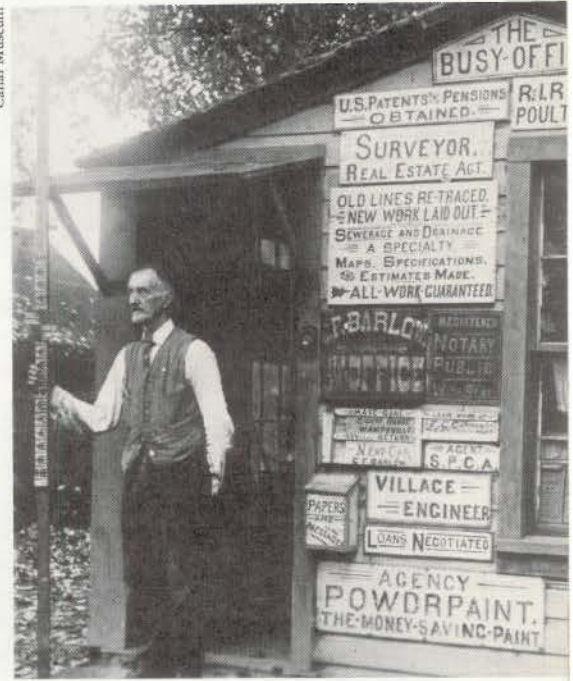 Canal Museum
THE
BUSY-OFFI
U.S. PATENTS & PENSIONS
OBTAINED.
R.I.R
POULT
SURVEYOR.
REAL ESTATE AGT.
OLD LINES RE-TRACED.
NEW WORK LAID OUT.
SEWERAGE AND DRAINAGE
A SPECIALTY.
MAPS. SPECIFICATIONS.
& ESTIMATES MADE.
ALL-WORK-GUARANTEED.
BARLOW
NOTARY
PUBLIC
AGENT
S.P.C.A.
VILLAGE
ENGINEER
PAPERS
AND
LOANS NEGOTIATED
AGENCY
POWDRPAINT.
THE-MONEY-SAVING-PAINT